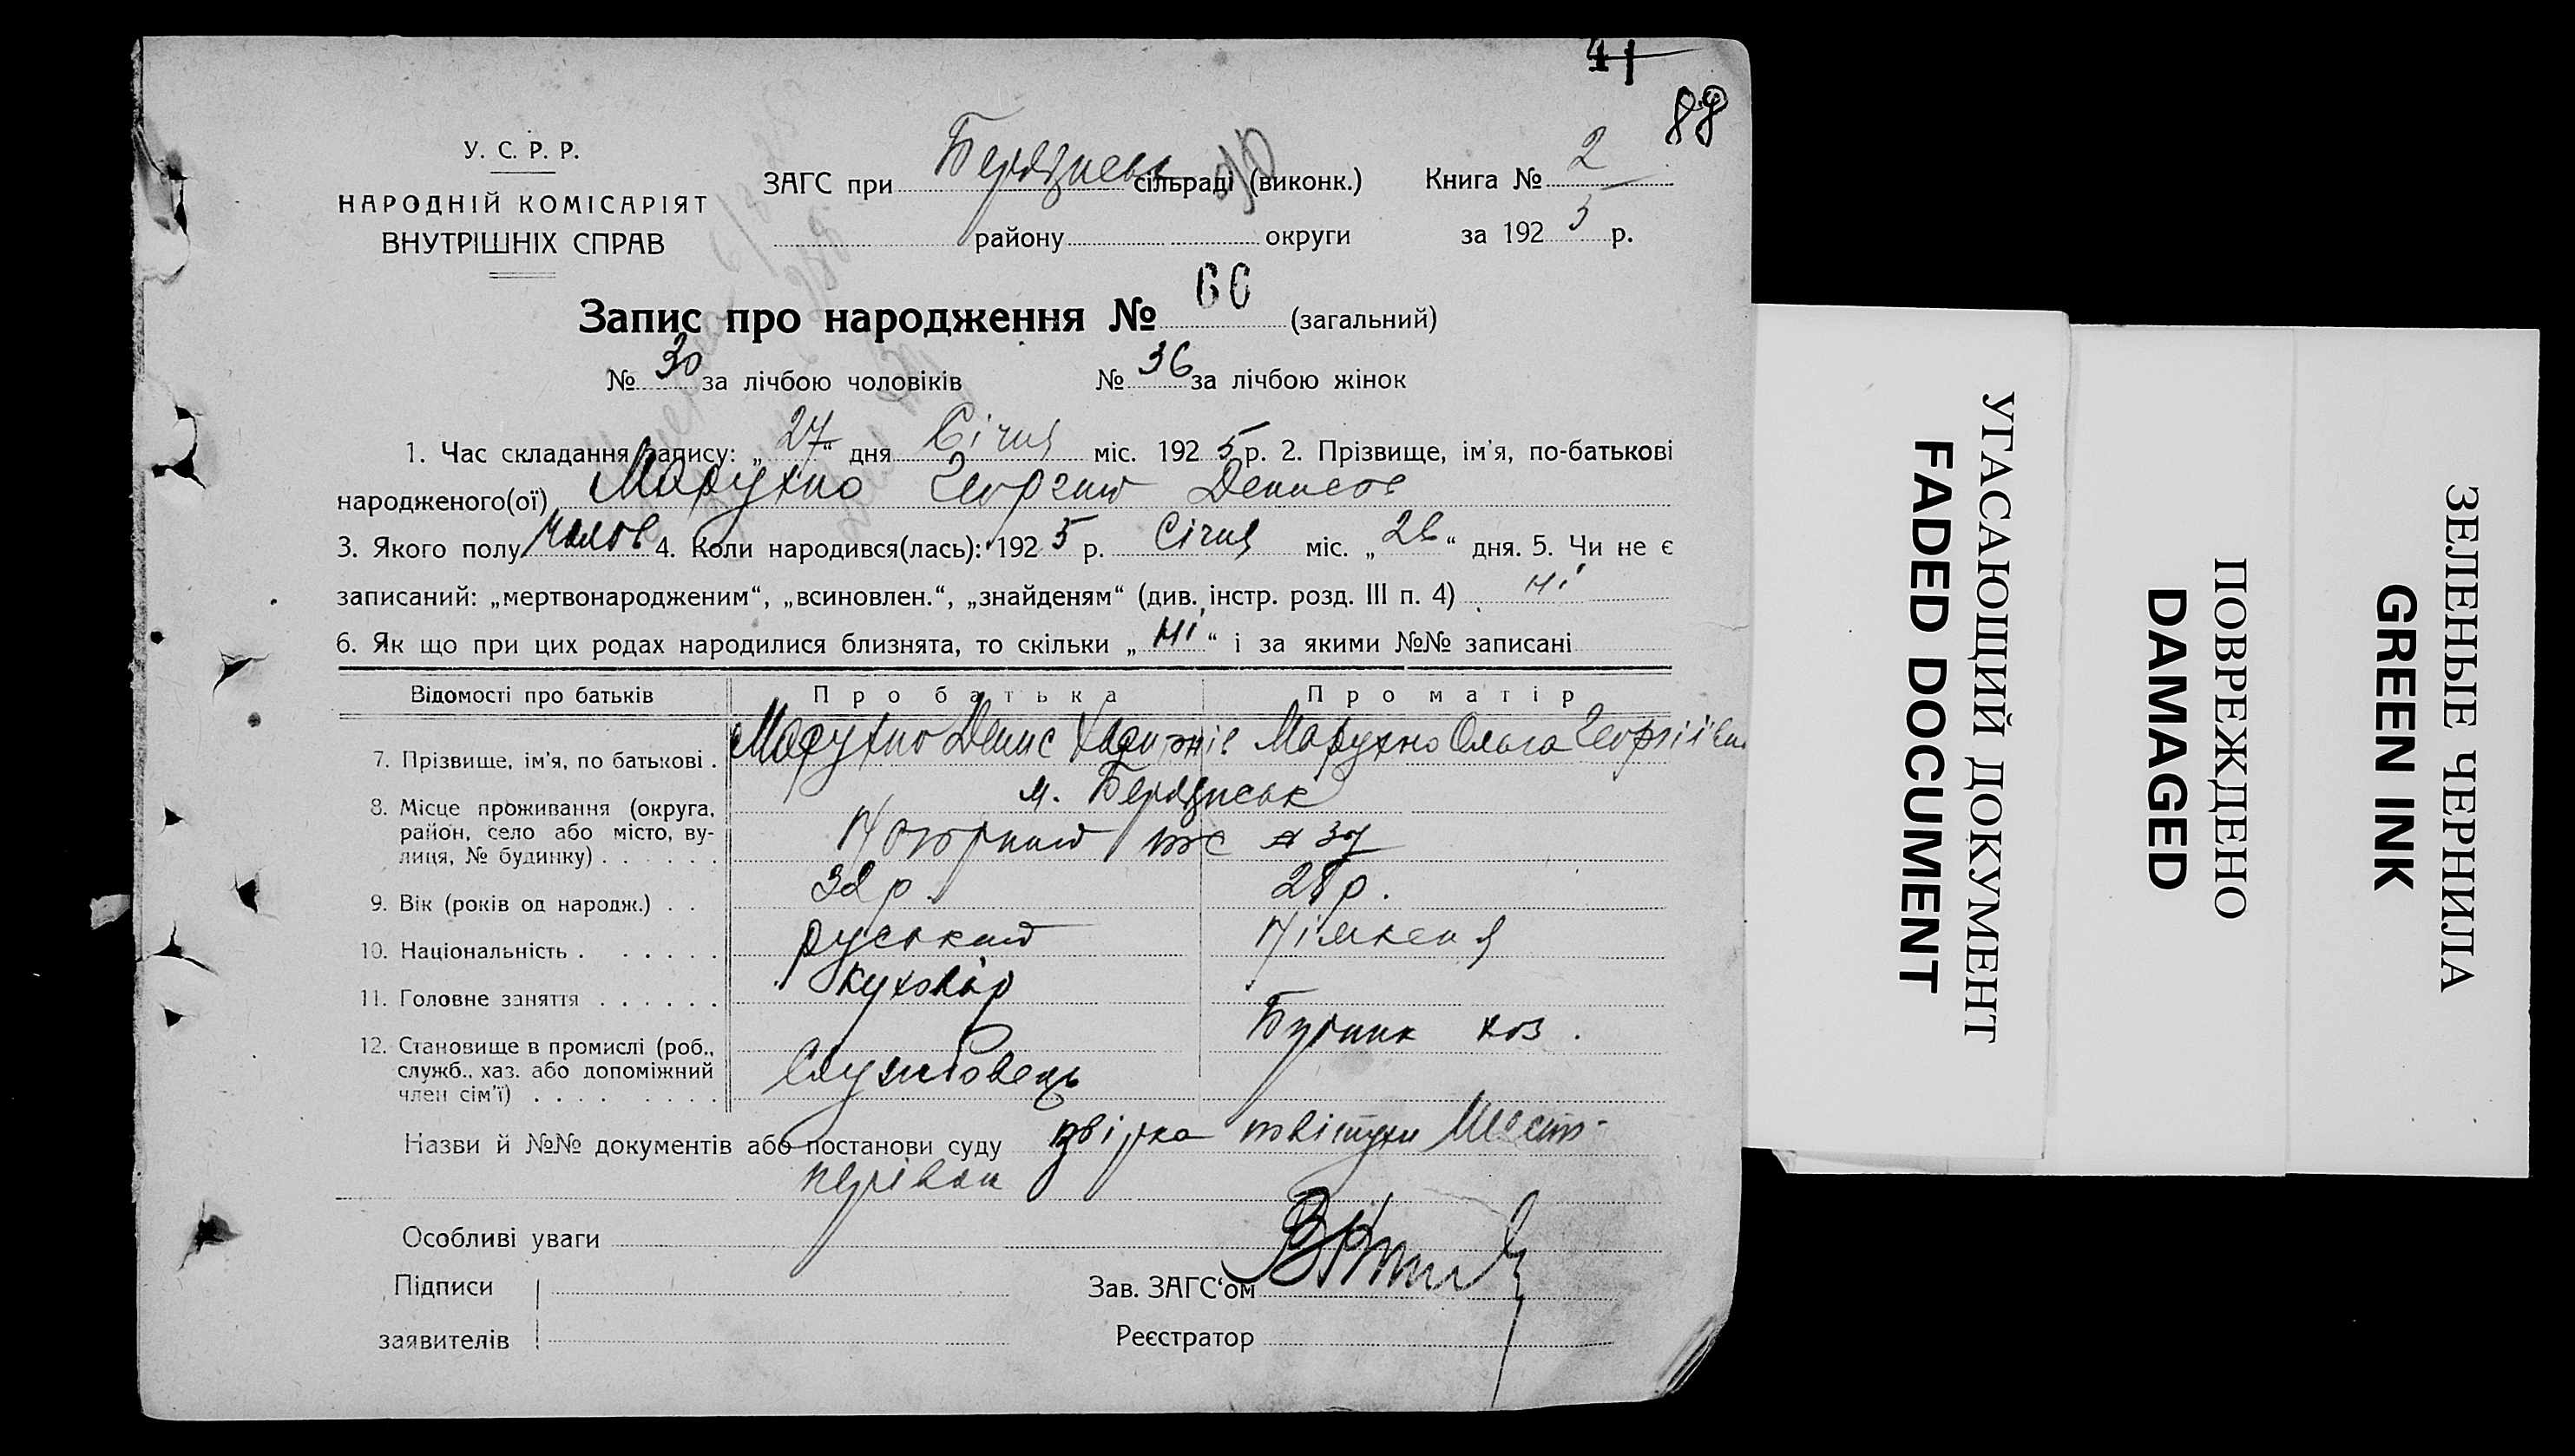 41
88
У. С. Р. Р.
НАРОДНІЙ КОМІСАРІЯТ
ВНУТРІШНІХ СПРАВ
ЗАГС при Бердянськ сільраді (виконк.) Книга № 2
району округи за 1925 р.
Запис про народження № 66 (загальний)
№ 30 за лічбою чоловіків № 36 за лічбою жінок
1. Час складання запису: „27“ дня Січня міс. 1925 р. 2. Прізвище, ім'я, по-батькові
народженого(ої) Марухно Георгий Денисов
3. Якого полу чолов 4. Коли народився(лась): 1925 р. Січня міс. „ “ дня. 5. Чи не є
записаний: „мертвонародженим“, „всиновлен.“, „знайденям“ (див. інстр. розд. III п. 4) ні
6. Як що при цих родах народилися близнята, то скільки „ні“ і за якими №№ записані
Відомості про батьків Про батька Про матір
7. Прізвище, ім'я, по батькові . Марухно Денис Харитнів Марухно Ольга Георгіїв
м. Бердянськ
8. Місце проживання (округа,
район, село або місто, ву-
лиця, № будинку) . . . . . . 37
9. Вік (років од народж.) . . 32 р. 28 р.
10. Національність . . . . . . руський Німкеня
11. Головне заняття . . . . . . куховар
12. Становище в промислі (роб.,
служб., хаз. або допоміжний
член сім'ї) . . . . . . . . Службовець хоз.
Назви й №№ документів або постанови суду повітухи
Особливі уваги
Підписи Зав. ЗАГС'ом
заявителів Реєстратор
УГАСАЮЩИЙ ДОКУМЕНТ
FADED DOCUMENT
ПОВРЕЖДЕНО
DAMAGED
ЗЕЛЕНЫЕ ЧЕРНИЛА
GREEN INK